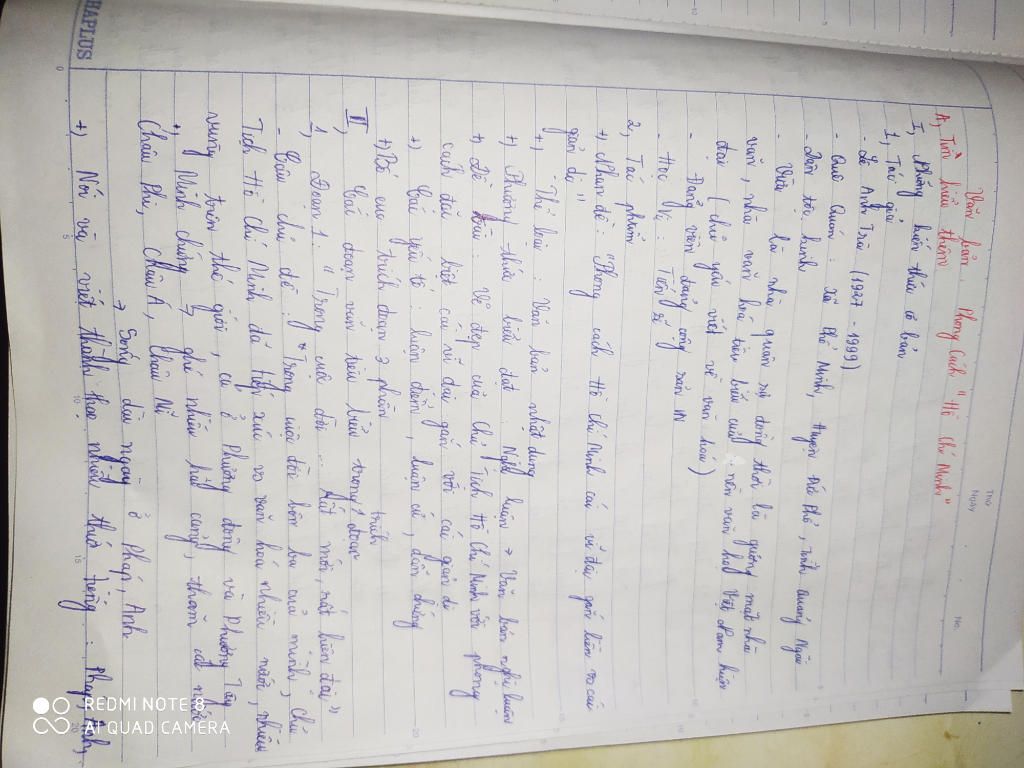 HAPLUS
Thứ
Ngày
No.
Văn bản: Phong Cách "Hồ Chí Minh"
A, Tìm hiểu thêm
I, Những kiến thức cơ bản
1, Tác giả
- Lê Anh Trà (1927 - 1999)
- Quê Quán: Xã Phổ Minh, Huyện Đức Phổ, Tỉnh Quảng Ngãi
- Dân tộc kinh
- Vừa là nhà quân sự đồng thời là gương mặt nhà
văn, nhà văn hoá tiêu biểu của nền văn học Việt Nam hiện
đại (chủ yếu viết về văn hoá)
- Đảng viên đảng cộng sản VN
- Học vị: Tiến sĩ
2, Tác phẩm
+) Nhan đề: "Phong cách Hồ Chí Minh cái vĩ đại gắn liền vs cái
giản dị"
+) Thể loại: Văn bản nhật dụng
+) Phương thức biểu đạt: Nghị luận → Văn bản nghị luận
+) Đề tài: Vẻ đẹp của Chủ Tịch Hồ Chí Minh với phong
cách đặc biệt cái vĩ đại gắn với cái giản dị
+) Các yếu tố: luận điểm, luận cứ, dẫn chứng
+) Bố cục trích đoạn 3 phần
II, Các đoạn văn tiêu biểu trong đoạn
trích
1, Đoạn 1: "Trong cuộc đời ... rất mới, rất hiện đại"
- Câu chủ đề: "Trong cuộc đời bôn ba của mình, chủ
Tịch Hồ Chí Minh đã tiếp xúc vs văn hoá nhiều nước, nhiều
vùng trên thế giới, cả ở Phương đông và Phương Tây
+, Minh chứng → ghé nhiều hải cảng, thăm các nước
Châu Phi, Châu Á, Châu Mĩ
→ Sống dài ngày ở Pháp, Anh
+) Nói và viết thành thạo nhiều thứ tiếng: Pháp, Anh,
REDMI NOTE 8
AI QUAD CAMERA